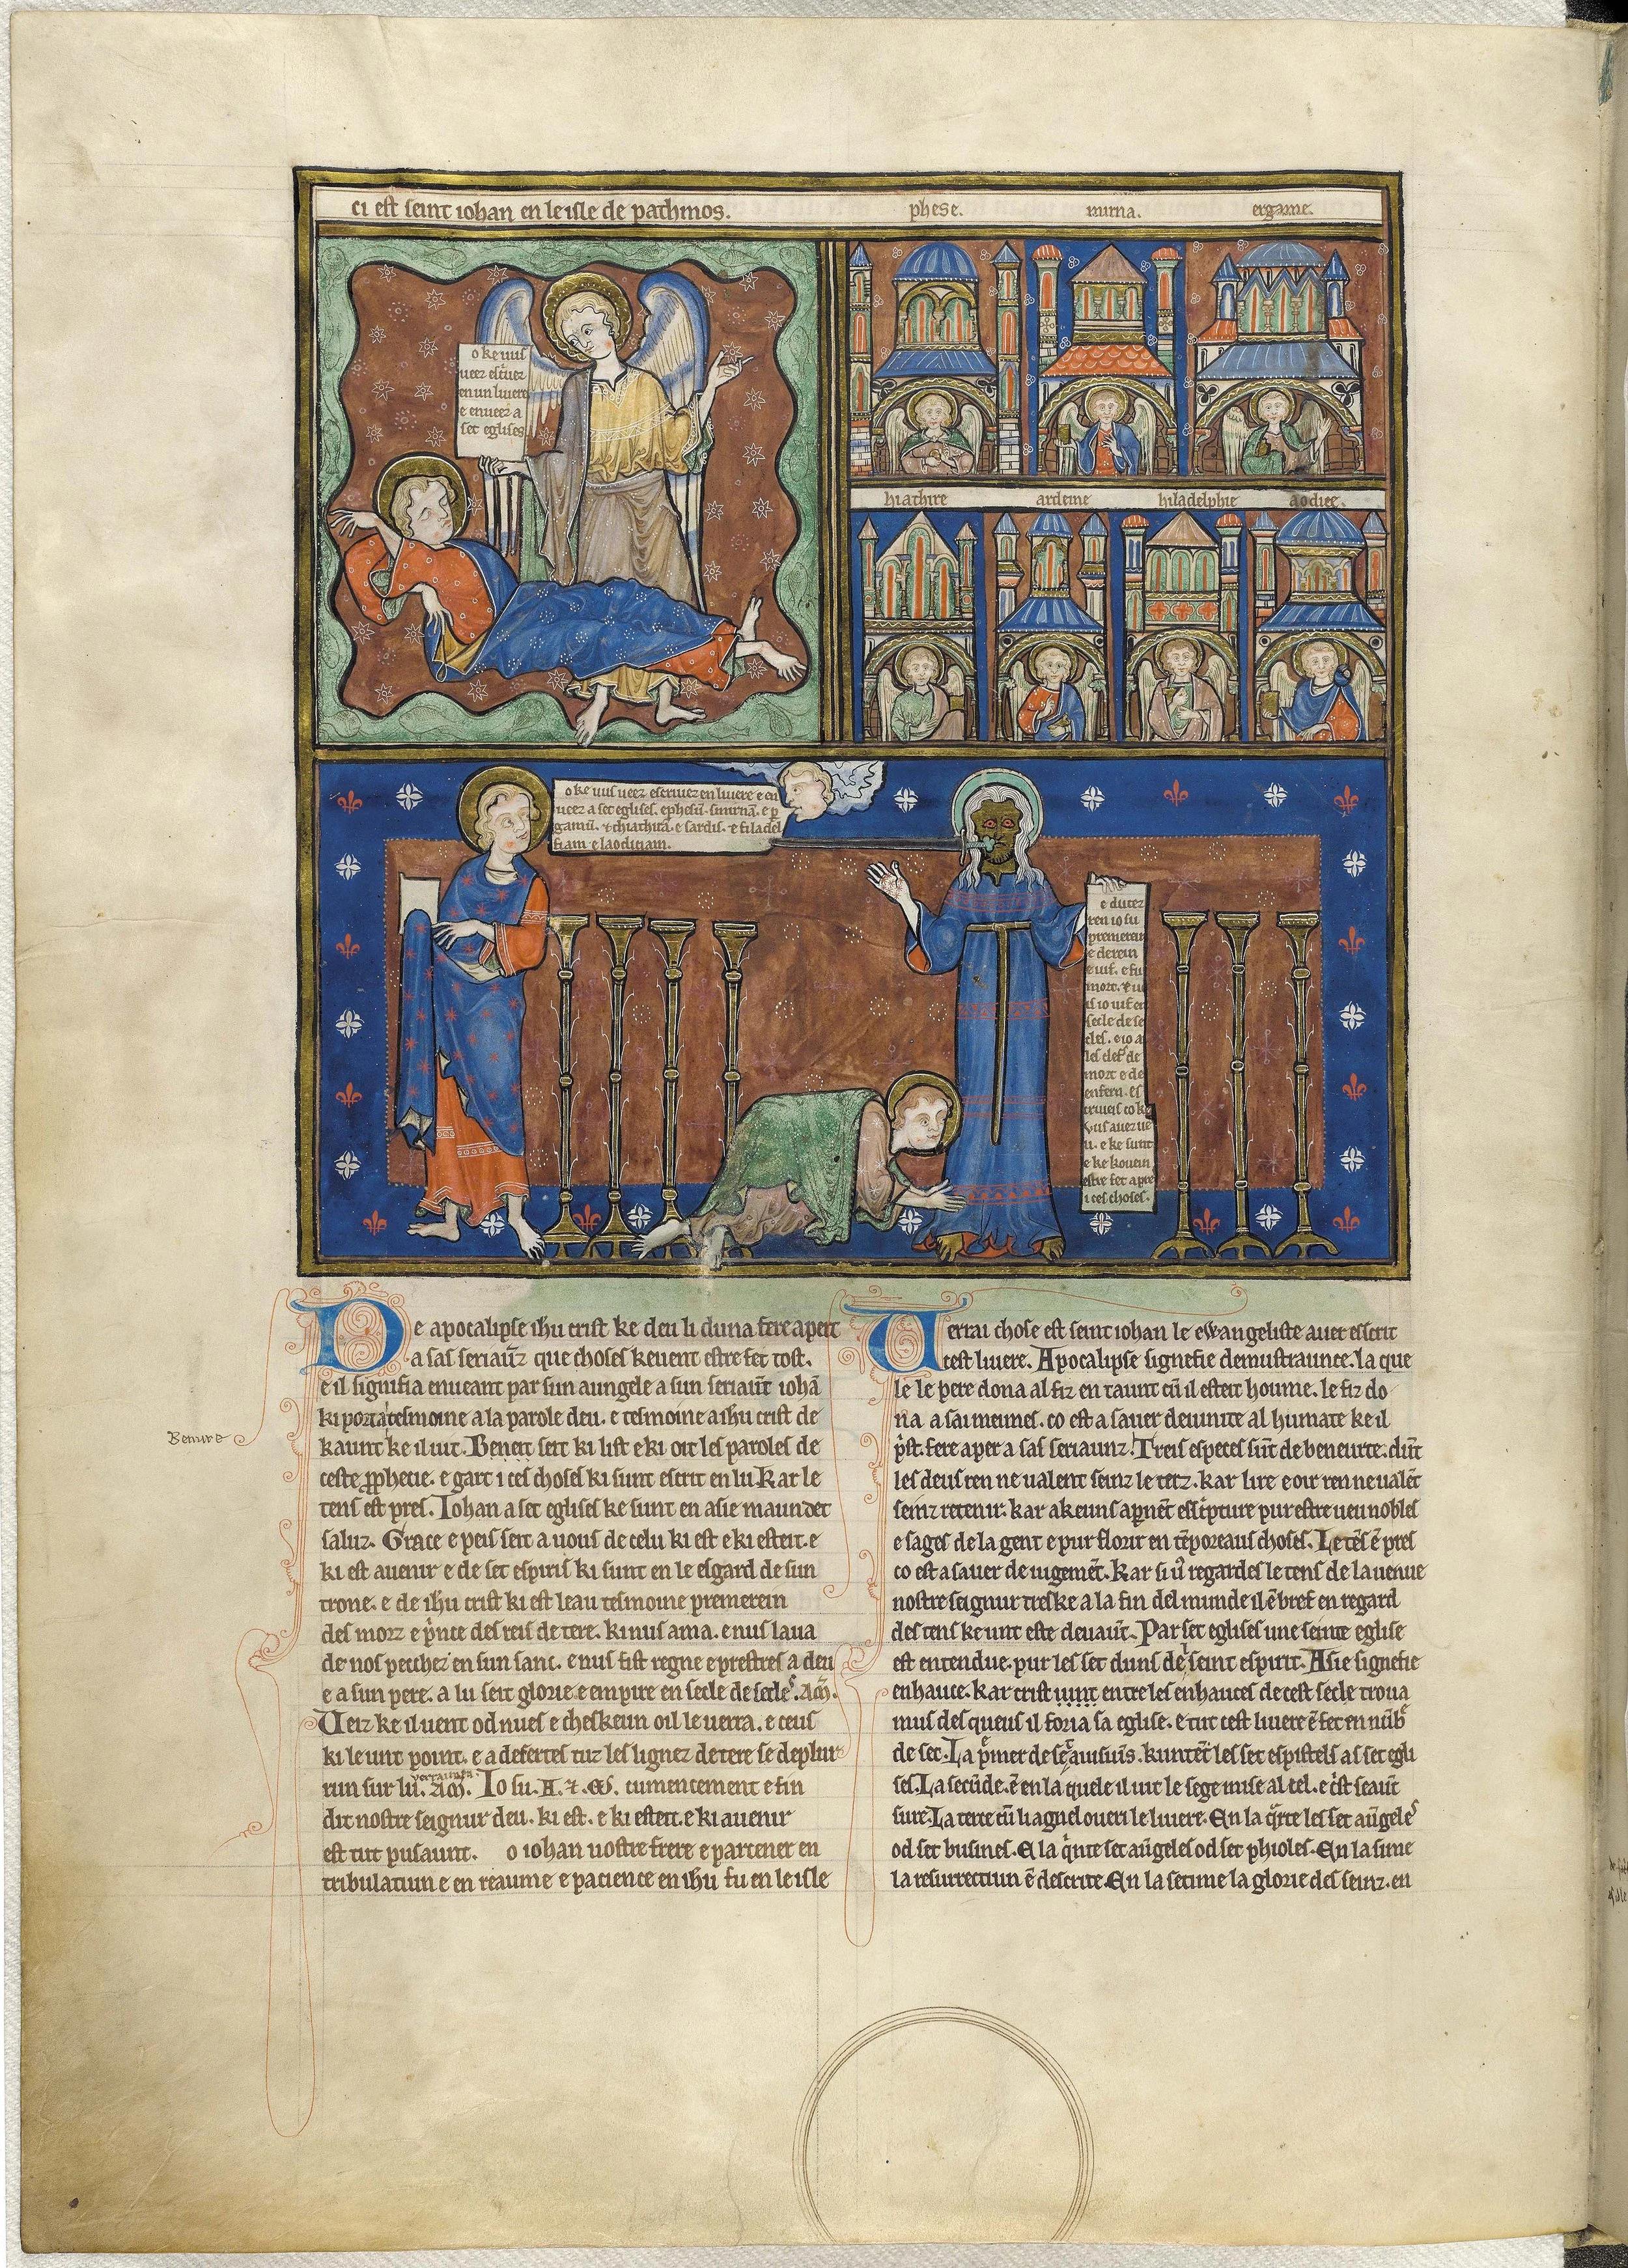 ci est seint iohan en le isle de pathmos.
phese. mirna. ergame.
o ke uus
ueez escuez
en un liuere
e enueez a
set eglises
hiathire ardeine hiladelphie aodice.
o ke uus ueez escriuez en liuere e en
ueez a set eglises. ephesū. smirnā. e ꝑ
gamū. ⁊ thiathirā. e sardis. ⁊ filadel
fiam e laodiciam.
e dutez
ren io su
premerein
e derein
e uif. e fu
mort. ⁊ ui
is io uif en
secle de se
cles. e io ai
les clefs de
mort e de
enfern. es
criueis co ke
vus auez ue
u. e ke sunt
e ke kouein
estre fet apre
i ces choses.
De apocalipse ihu crist ke deu li duna fere apert
a sas seriaūz que choses keuent estre fet tost.
e il signifia enueant par sun aungele a sun seriaūt iohā
ki porta tesmoine a la parole deu. e tesmoine a ihu crist de
kaunt ke il uit. Beneit seit ki list e ki oit les paroles de
ceste ꝓphecie. e gart i ces choses ki sunt escrit en lu Kar le
tens est pres. Iohan a set eglises ke sunt en asie maundet
saluz. Grace e peis seit a uous de celu ki est e ki esteit. e
ki est auenir e de set espiriz ki sunt en le esgard de sun
trone. e de ihu crist ki est leau tesmoine premerein
des morz e pͥnce des reis de tere. ki nus ama. e nus laua
de nos pecchez en sun sanc. e nus fist regne e prestres a deu
e a sun pere. a lu seit glorie e empire en secle de secles. Am̄.
Veiz ke il uent od nues e cheskeun oil le uerra. e ceus
ki le unt point. e a defertes tuz les lignez de tere se deplur
verraiment
run sur lu. Am̄. Io su. A. ⁊. ω. cumencement e fin
dit nostre seignur deu. ki est. e ki esteit. e ki auenir
est tut pusaunt. o iohan uostre frere e partener en
tribulatiun e en reaume e pacience en ihu fu en le isle
Uerrai chose est seint iohan le ewangeliste auer escrit
cest liuere. Apocalipse signefie demustraunce. la que
le le pere dona al fiz en taunt cū il esteit houme. le fiz do
na a sai meumes. co est a sauer deuinite al humate ke il
pͥst. fere aper a sas seriaunz. Treis especes sūt de beneurte. dūt
les deus ren ne ualent seinz le terz. kar lire e oir ren ne ualēt
seinz retenir. kar akeuns apnēt escͥpture pur estre ueu nobles
e sages de la gent e pur florir en tēporeaus choses. Le tēs ē pres
co est a sauer de iugemēt. Kar si uͦ regardes le tens de la uenue
nostre seignur treske a la fin del munde il ē bref en regard
des tens ke unt este deuaūt. Par set eglises une seinte eglise
est entendue. pur les set duns de seint espirit. Asie signefie
enhauce. kar crist uint entre les enhauces de cest secle troua
mus des queus il foria sa eglise. e tut cest liuere ē fet en nūbͤ
de set. La pͤmer de set auisiuns. kuntēt les set espistels as set egli
ses. La secūde. ē en la quele il uit le sege mise al cel. e cͥst seaūt
sure. La terce cū li agnel oueri le liuere. En la qͣrte les set aūgeles
od set busines. E la qͥnte set aūgeles od set phioles. En la sime
la resurrectiun ē descrite. En la setime la glorie des seinz. en